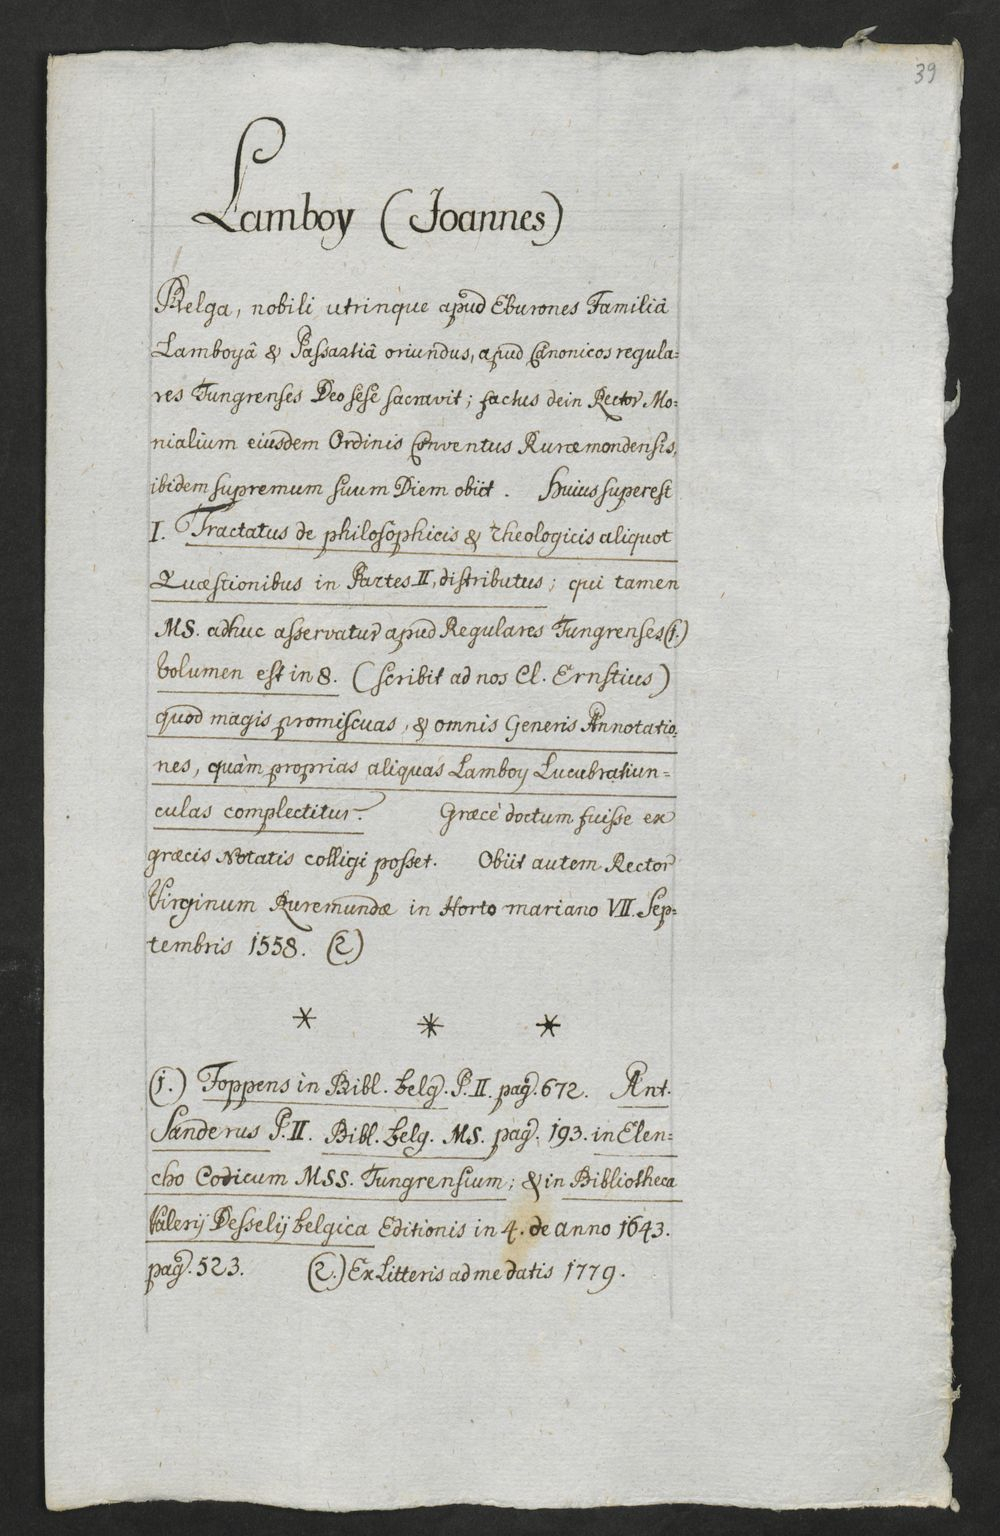 39
Lamboy (Joannes)
Belga, nobili utrinque apud Eburones Familiâ
Lamboyâ & Passartiâ oriundus, apud Canonicos regula=
res Tungrenses Deo sese sacravit; factus dein Rector Mo=
nialium eiusdem Ordinis Conventus Ruræmondensis,
ibidem supremum suum Diem obiit. Huius superest
I. Tractatus de philosophicis & theologicis aliquot
Quæstionibus in Partes II, distributus; qui tamen
MS. adhuc asservatur apud Regulares Tungrenses (1.)
Volumen est in 8. (scribit ad nos Cl. Ernstius)
quod magis promiscuas, & omnis Generis Annotatio=
nes, quàm proprias aliquas Lamboy Lucubratiun=
culas complectitur. Græcè doctum fuisse ex
græcis Notatis colligi posset. Obiit autem Rector
Virginum Ruremundæ in Horto mariano VII. Sep=
tembris 1558. (2)
* * *
(1.) Foppens in Bibl. belg. P. II. pag. 672. Ant.
Sanderus P. II. Bibl. belg. MS. pag. 193. in Elen=
cho Codicum MSS. Tungrensium; & in Bibliotheca
Valerij Desselij belgica Editionis in 4. de anno 1643.
pag. 523. (2.) Ex Litteris ad me datis 1779.